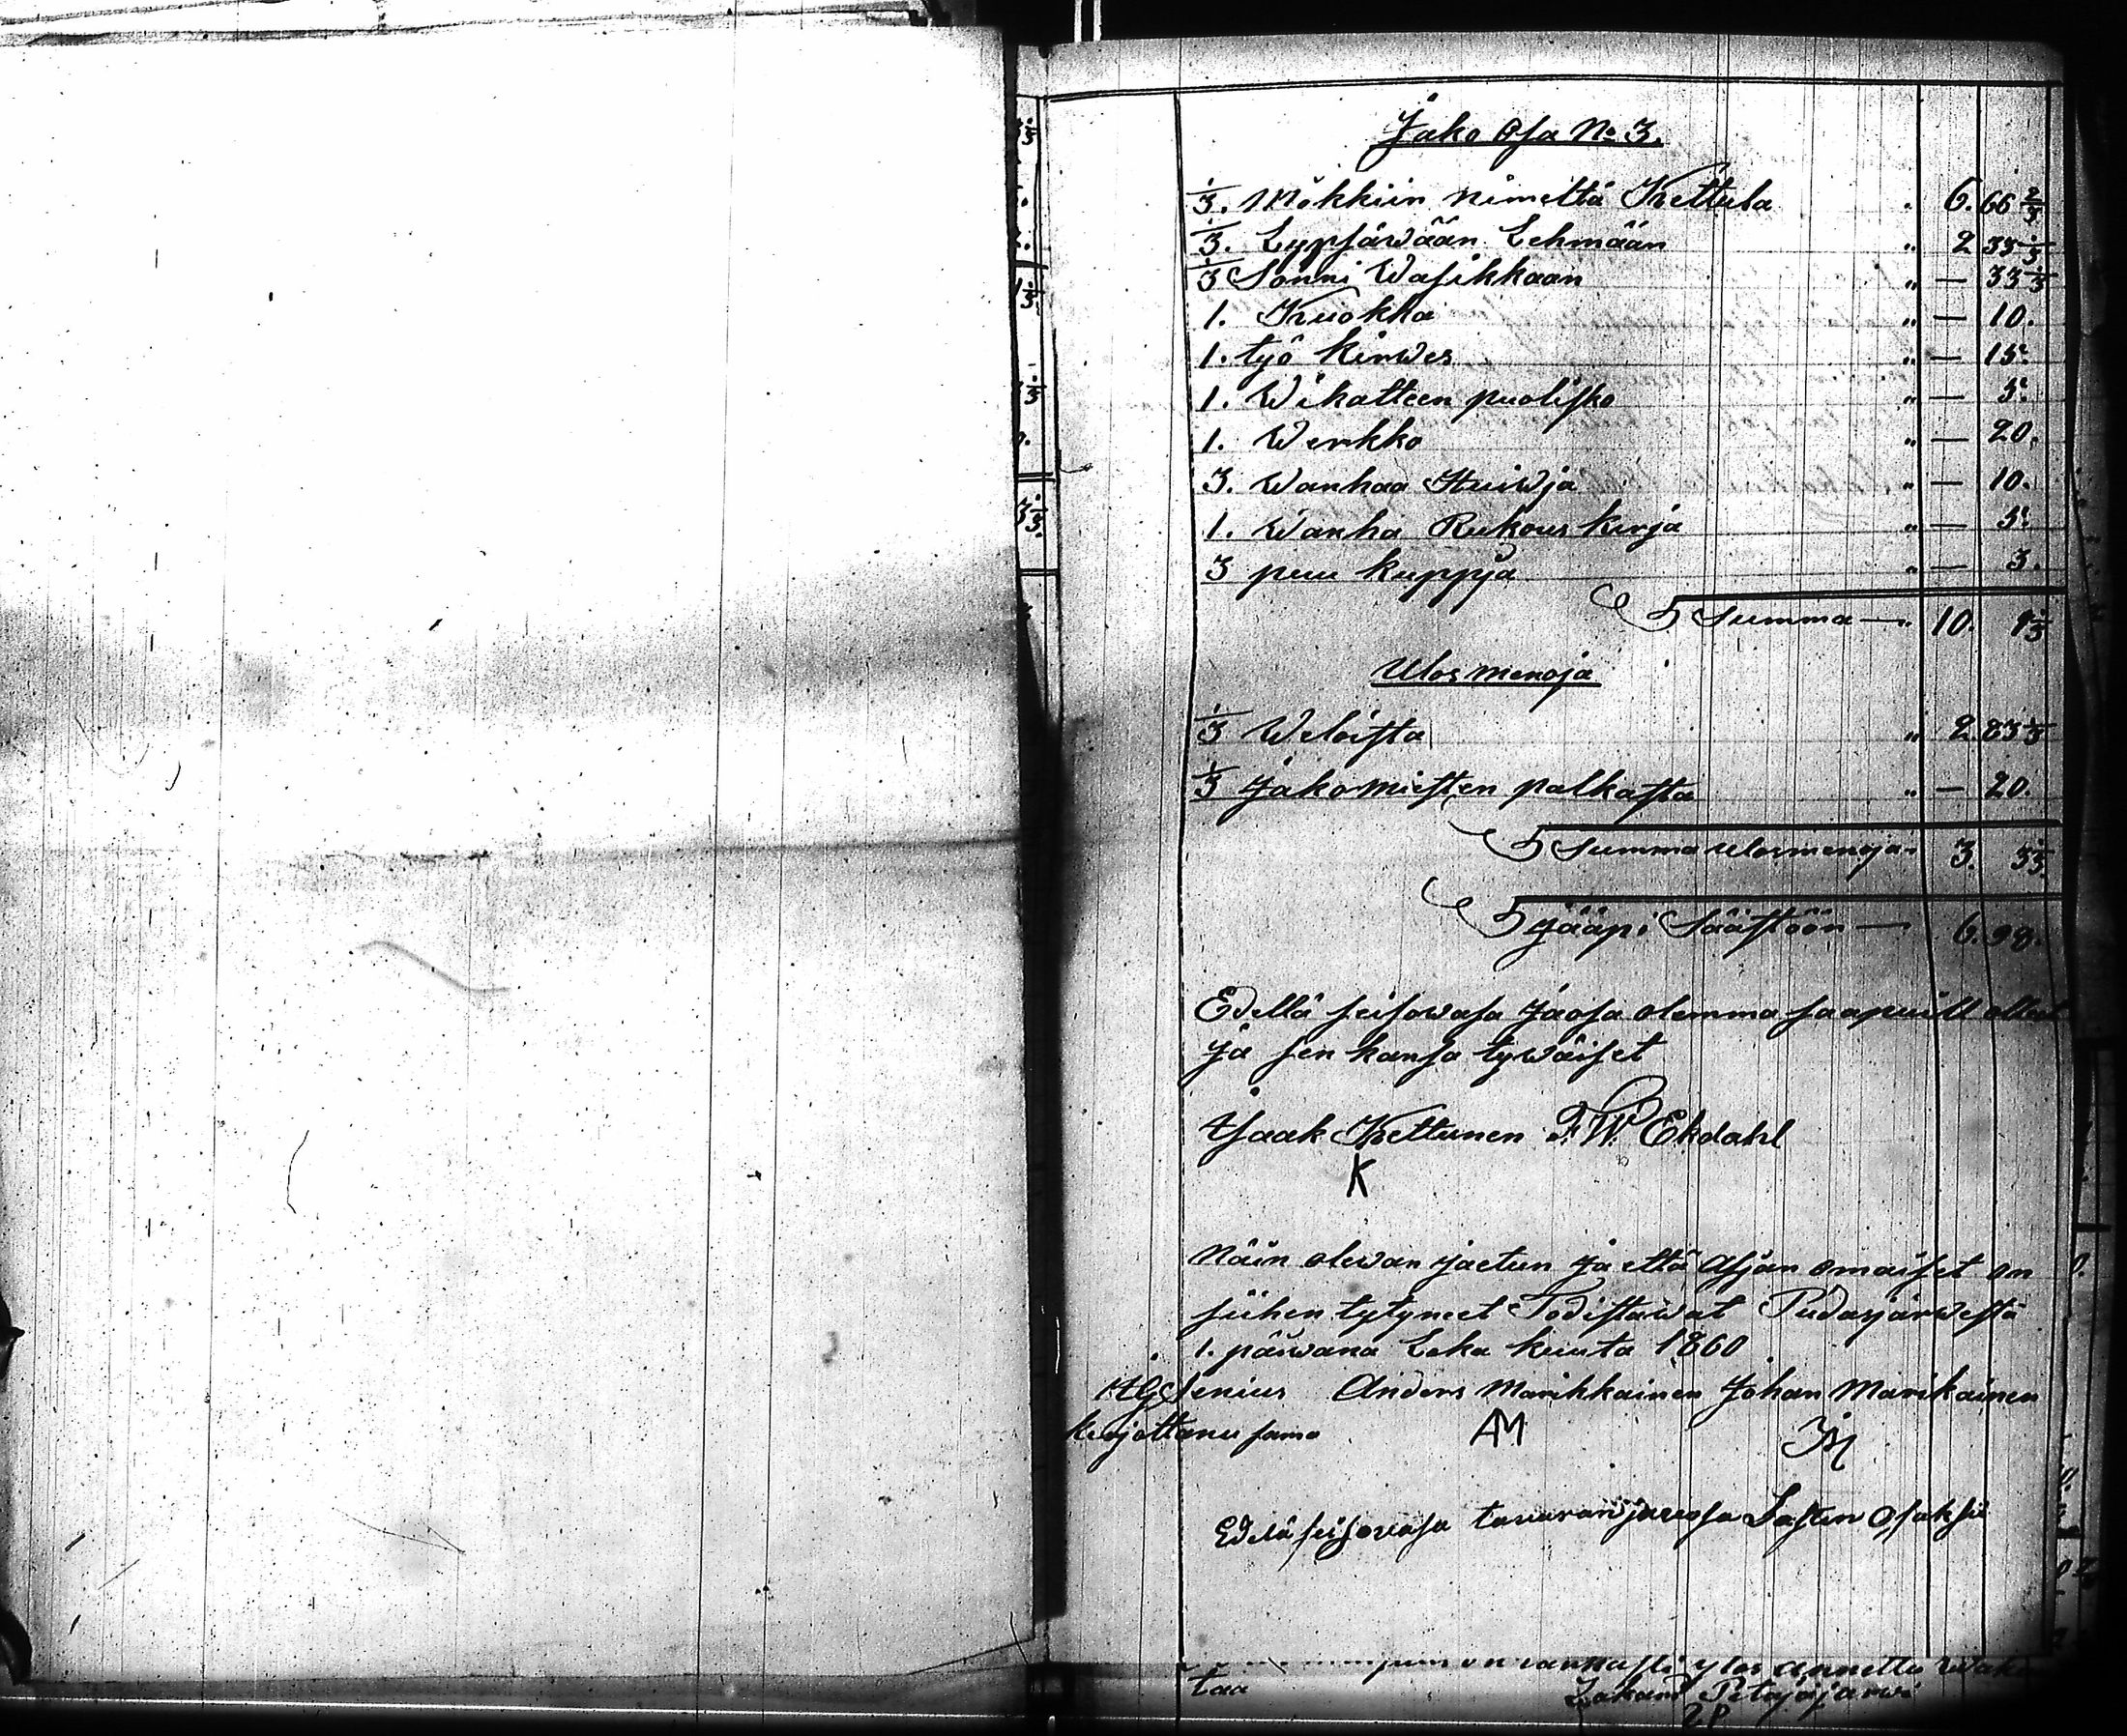 Jako Osa No 3.
1/3. Mökkiin nimeltä Kettula " 6. 66 2/3
1/3. Lypsäwään Lehmään " 2 33 1/3
1/3 Sonni Wasikkaan " — 33 1/3
1. Kuokka " — 10.
1. työ kirwes " — 15.
1. Wikatteen puolisko " — 5.
1. Werkko " — 20.
3. Wanhaa Huiwja " — 10.
1. Wanha Rukous kirja " — 5.
3 puu kuppja " — 3.
Summa — " 10. 1 1/3
Ulosmenoja
1/3 Weloista " 2. 83 1/3
1/3 Jakomiesten palkasta " — 20.
Summa ulosmenoja " 3. 3 1/3.
Jääpi Säästöön — 6. 98.
Edellä seisowasa Jaosa olemma saapuill ollut
Ja sen kansa tywäiset
Isaak Kettunen F. W. Ekdahl
K
Näin olewan jaetun Ja että Asjan omaiset on
siihen tytyneet Todistawat Pudasjärwestä
1. päiwänä Loka kuuta 1860
Anders Marikkainen Johan Marikainen
kirjottanu
AM JM
Edelä seisovasa tavaran jaosa Lasten Osaksi
on ylos annettu
taa Zakari Petäjäjärwi
ZP